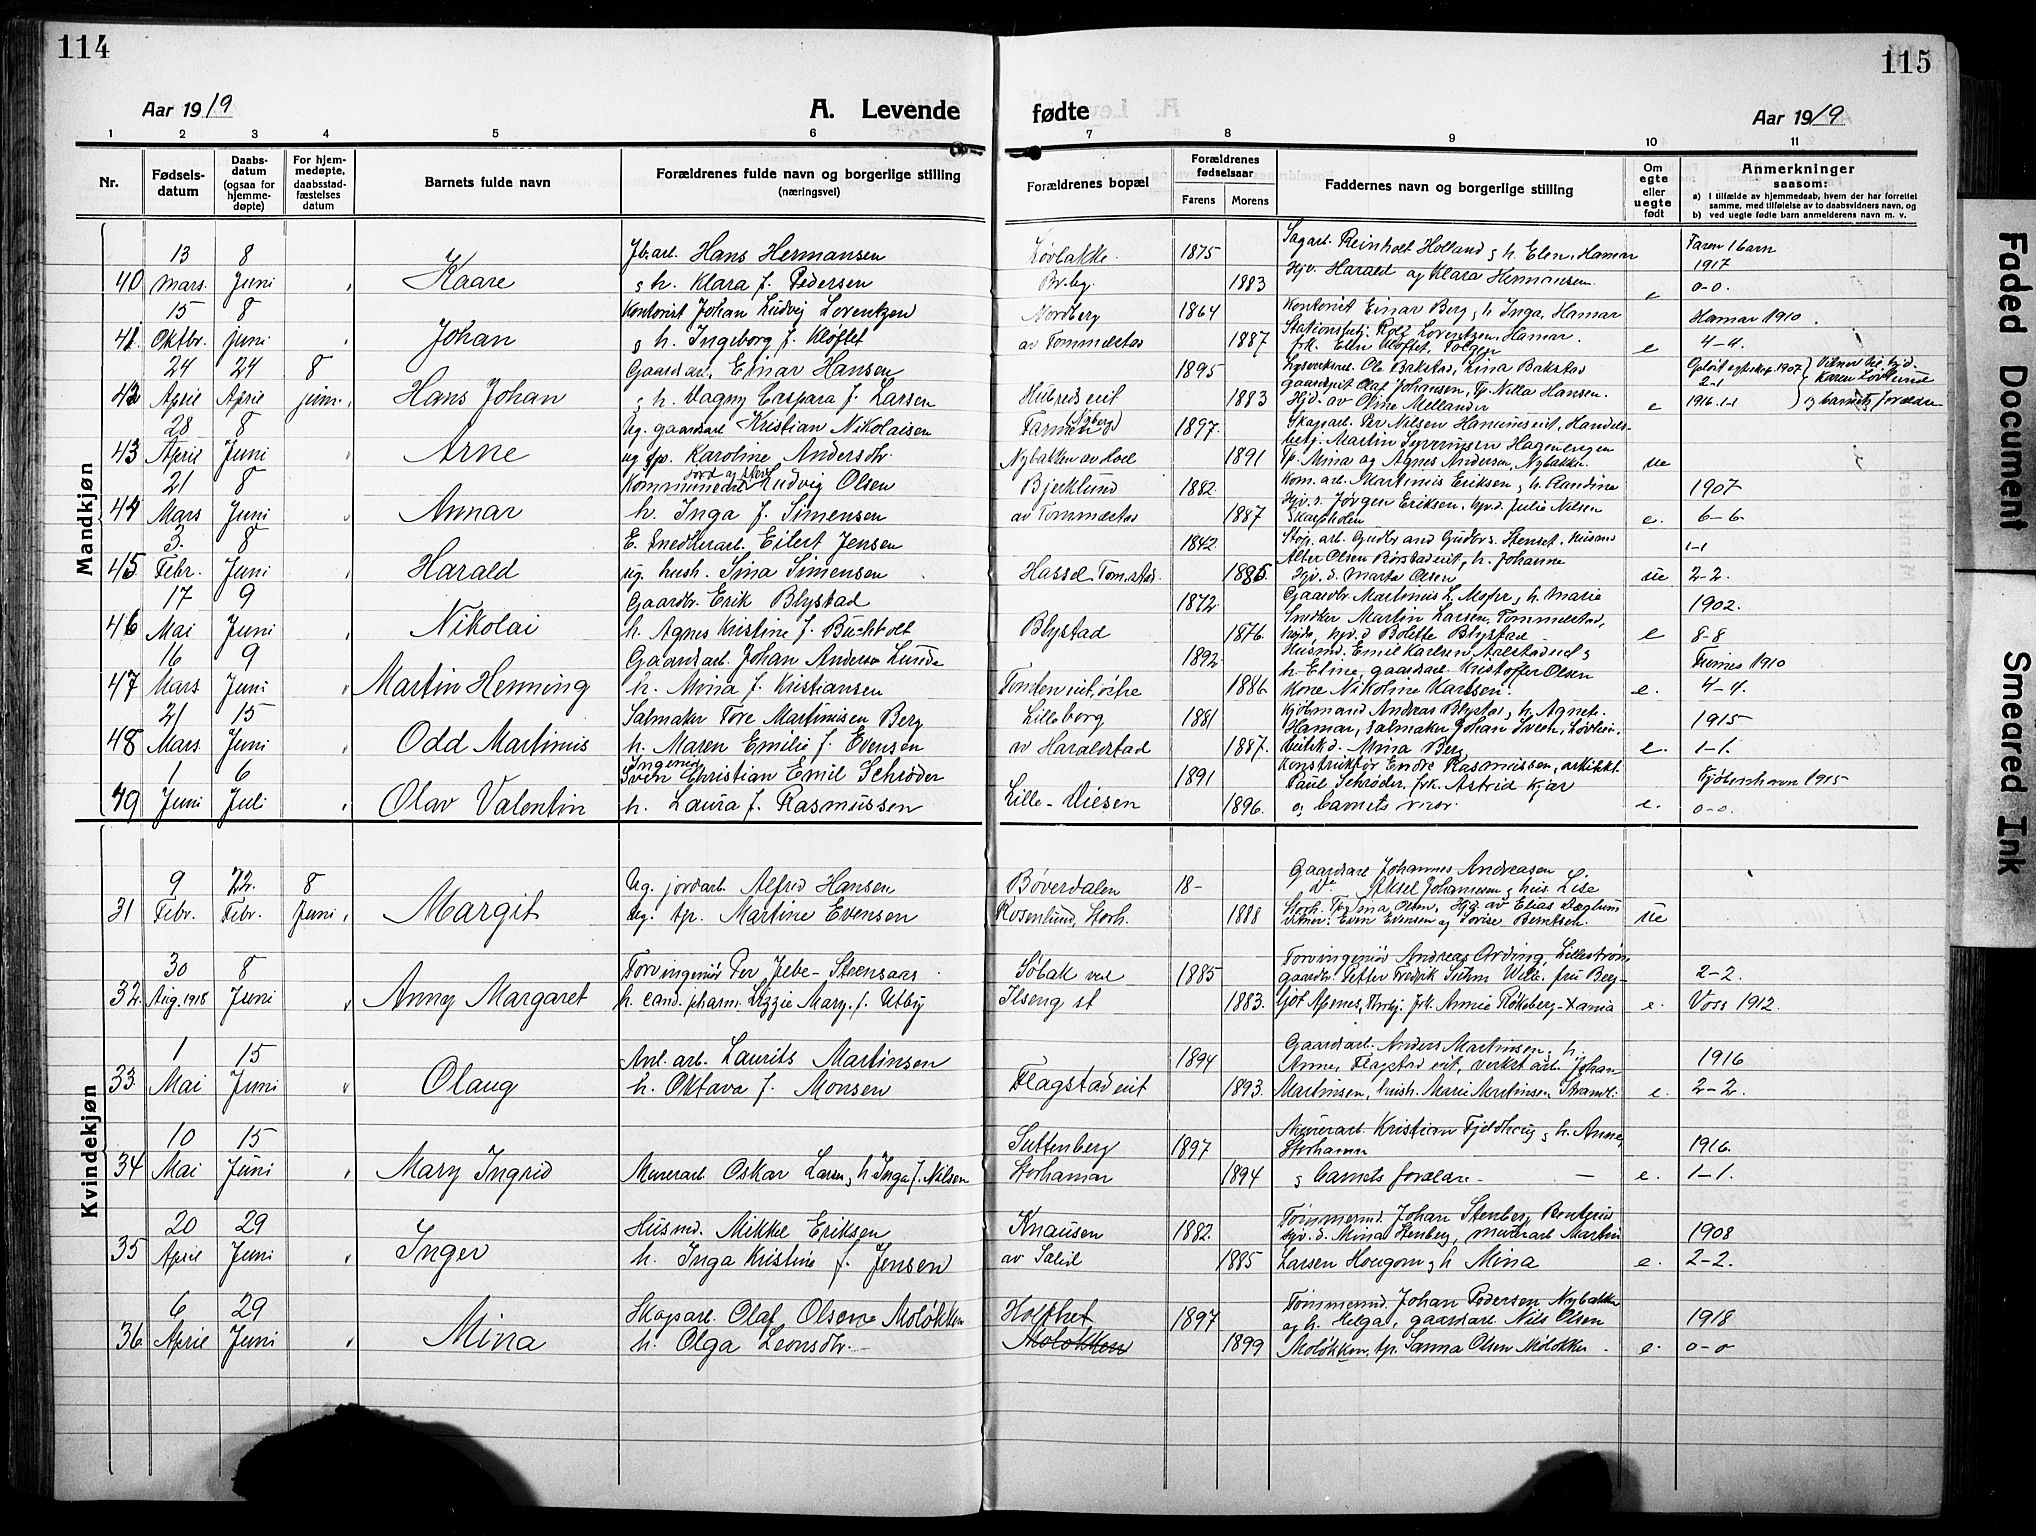 114
Aar 1919
A. Levende
1 2 3 4 5 6
Nr.
Fødsels-
datum
Daabs-
datum
(ogsaa for
hjemme-
døpte)
For hjem-
medøpte,
daabsstad-
fæstelses
datum
Barnets fulde navn
Forældrenes fulde navn og borgerlige stilling
(næringsvei)
Mandkjøn
13 8 Hans Hermansen
40 Mars Juni Kaare h. Klara f. Pedersen
15 8 Kontorist Johan Ludvig Lorentzen
41 Oktbr. Juni Johan h. Ingeborg f. Kløftet
24 24 8 Gaardsarb. Einar Hansen
42 April April Juni Hans Johan h. Dagny Caspara f. Larsen
28 8 Ug. gaardsarb Kristian Nikolaisen
43 April Juni Arne ug. tp. Karoline Andersdtr.
21 8 Ludvig Olsen
44 Mars Juni Annar h. Inga f. Simensen
3 8 E. Snedkerarb. Eilert Jensen
45 Febr. Juni Harald ug. hush. Sina Simensen
17 9 Gaardbr. Erik Blystad
46 Mai Juni Nikolai h. Agnes Kristine f. Buchholt
16 9 Gaardsarb. Johan Anderson Lunde
47 Mars Juni Martin Henning h. Mina f. Kristiansen
21 15 Salmaker Tore Martinisen Berg
48 Mars Juni Odd Martinius h. Maren Emilie f. Evensen
Ingeniør
1 6 Sven Christian Emil Schrøder
49 Juni Juli Olav Valentin h. Laura f. Rasmussen
Kvindekjøn
9 22. 8 Ug. jordarb. Alfred Hansen
31 Febr. Febr. Juni Margit Ug. tp. Martine Evensen
30 8 Torvingeniør Per Jebe-Steensaas
32. Aug. 1918 Juni Anny Margaret h. cand. pharm. Lizzie Mary f. Utby
1 15 Anl. arb. Laurits Martinsen
33 Mai Juni Olaug h. Oktava f. Monsen
10 15
34 Mai Juni Mary Ingrid Murerarb. Oskar Larsen, h Inga f. Nilsen
20 29 Husmd. Mikkel Eriksen
35 April Juni Inger h. Inga Kristine f. Jensen
6 29 Skogsarb. Olaf Olsen Moløkken
36 April Juni Mina h. Olga Leonsdtr.
115
fødte
Aar 1919
7 8 9 10 11
Forældrenes bopæl
Forældrenes
fødselsaar
Farens Morens
Faddernes navn og borgerlige stilling
Om
egte
eller
uegte
født
Anmerkninger
saasom:
a) I tilfælde av hjemmedaab, hvem der har forrettet
samme, med tilføielse av to daabsvidners navn, og
b) ved uegte fødte barn anmelderens navn m. v.
Løvbakke 1875 Sagarb. Reinholt Holland, h. Elen, Hamar Faren 1 barn
1917
Br.by. 1883 Hjv. Harald og Klara Hermansen. e 0-0.
Nordberg 1864 Kontorist Einar Berg, h Inga, Hamar Hamar 1910
Stationsbetj. Rolf Lorentzen, Hamar.
av Tommelstad 1887 frk. Elen Kløftet, Tolgen e 4-4.
1895 Ole Bakstad, Lina Bakstad
Gaardgut Olaf Johansen, Tp. Nilla Hansen. 2-1
1883 Hjd. av Oline Mellander e 1916. 1-1
Karen Løvlund
og barnets forældre
Farmen (Nyberg) 1897. Skogsarb. Per Nilsen
betj. Martin Syversen Hagenengen
Nybakken av Hol 1891 Tp. Mina og Agnes Andersen, Nybakke. ue
Bjerklund 1882. Kom. arb. Martinius Eriksen, h. Randine 1907
Hjv. s. Jørgen Eriksen, hjv.d. Julie Nilsen
av Tommelstad 1887 Skarpholen e. 6-6.
1842. 1-1
Alter Olsen Børstad eit, h. Johanne
Hassel, Tomstad. 1885. Hjv. d. Marta Olsen ue 2-2.
1872 Gaardbr. Martinius L. Mofer, h. Marie 1902.
Snedker Martin Larsen, Tommelstad,
Blystad 1876. hjv. d Bolette Blystad e 8-8
1892 Husmd. Emil Karlsen Aalstad eie Furnes 1910
h. Eline, gaardsarb Kristoffer Olsen
1886 Kone Nikoline Karlsen. e. 4-4.
Lilleborg 1881 Kjøbmand Andreas Blystad, h. Agnete 1915
Hamar, Salmaker Johan
av Haraldstad 1887. Mina Berg e. 1-1.
1891 Konstruktør Endre Rasmussen, arkitekt Kjøbenhavn 1915
Paul Schrøder, frk. Astrid Kjær
Lille-Diesen 1896. og barnets mor. e. 0-0.
Bøverdalen 18- Gaardsarb Johannes Andreasen
do Aksel Johannesen, hus. Lise
Rosenlund, Storh. 1888 Storh. Tp Lina Olsen, Hjg av Elias Dæglum ue
vitner: Even Evensen og Lovise Berntsen.
Søbak ved 1885 Torvingeniør Andreas Ording, Lillestrøm 2-2.
gaardbr. Petter Fredrik Suhm Wille. fru Berg-
Ilseng st 1883. ljot Apsnes, frk. Annie Røkeberg-Xania e. Voss 1912.
1894 Gaardsarb. Anders Martinsen, h. 1916
Anne, Flagstad eit, verkst arb. Johan
Flagstad eit 1893. Martinsen, hush. Marie Martinsen, Strandl. e. 2-2.
Suttenberg 1897 Murerarb. Kristian Fjeldhaug, h. Anne, 1916.
Storhamar
Storhamar 1894 og barnets forældre - e. 1-1.
Knausen 1882. Tømmermd. Johan Stenberg, 1908
hjv. d. Mina Stenberg, murerarb Martin
av Salid 1885 Larsen Hougom, h Mina e. 2-2.
Holthet 1897 Tømmermd. Johan Pedersen Nybakke 1918
og h. Helga, gaardsarb Nils Olsen
Moløkken 1899 Moløkken, tp. Sanna Olsen Moløkke. e. 0-0
Faded Document
Smeared Ink